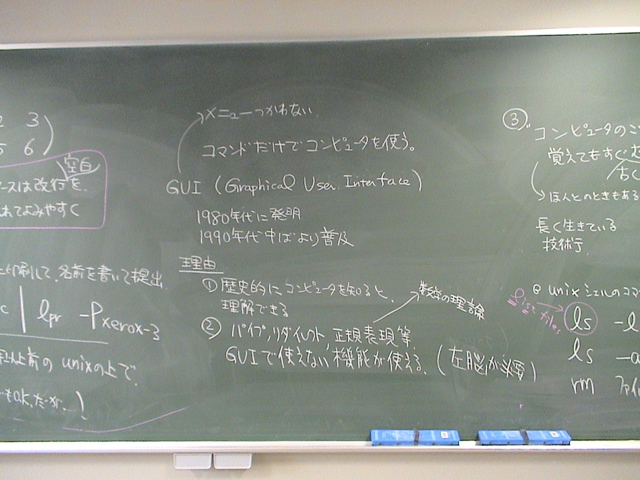 2 3
5 6
空白
ースは改行を
れてよみやすく
印刷して、名前を書いて提出
c | lpr -Pxerox-3
前の unixの上で、
メニューつかわない
コマンドだけでコンピュータを使う。
GUI (Graphical User Interface)
1980年代に発明
1990年代中ばより普及
理由
① 歴史的にコンピュータを知ると、
理解できる
数学の理論
② パイプ,リダイレクト,正規表現等
GUIで使えない機能が使える。(左脳が必要)
③ コンピュータのこ
覚えてもすぐ
ほんとのときもある
長く生きている
技術。
@ unixシェルのコマ
list files
ls -l
ls -a
rm ファイ